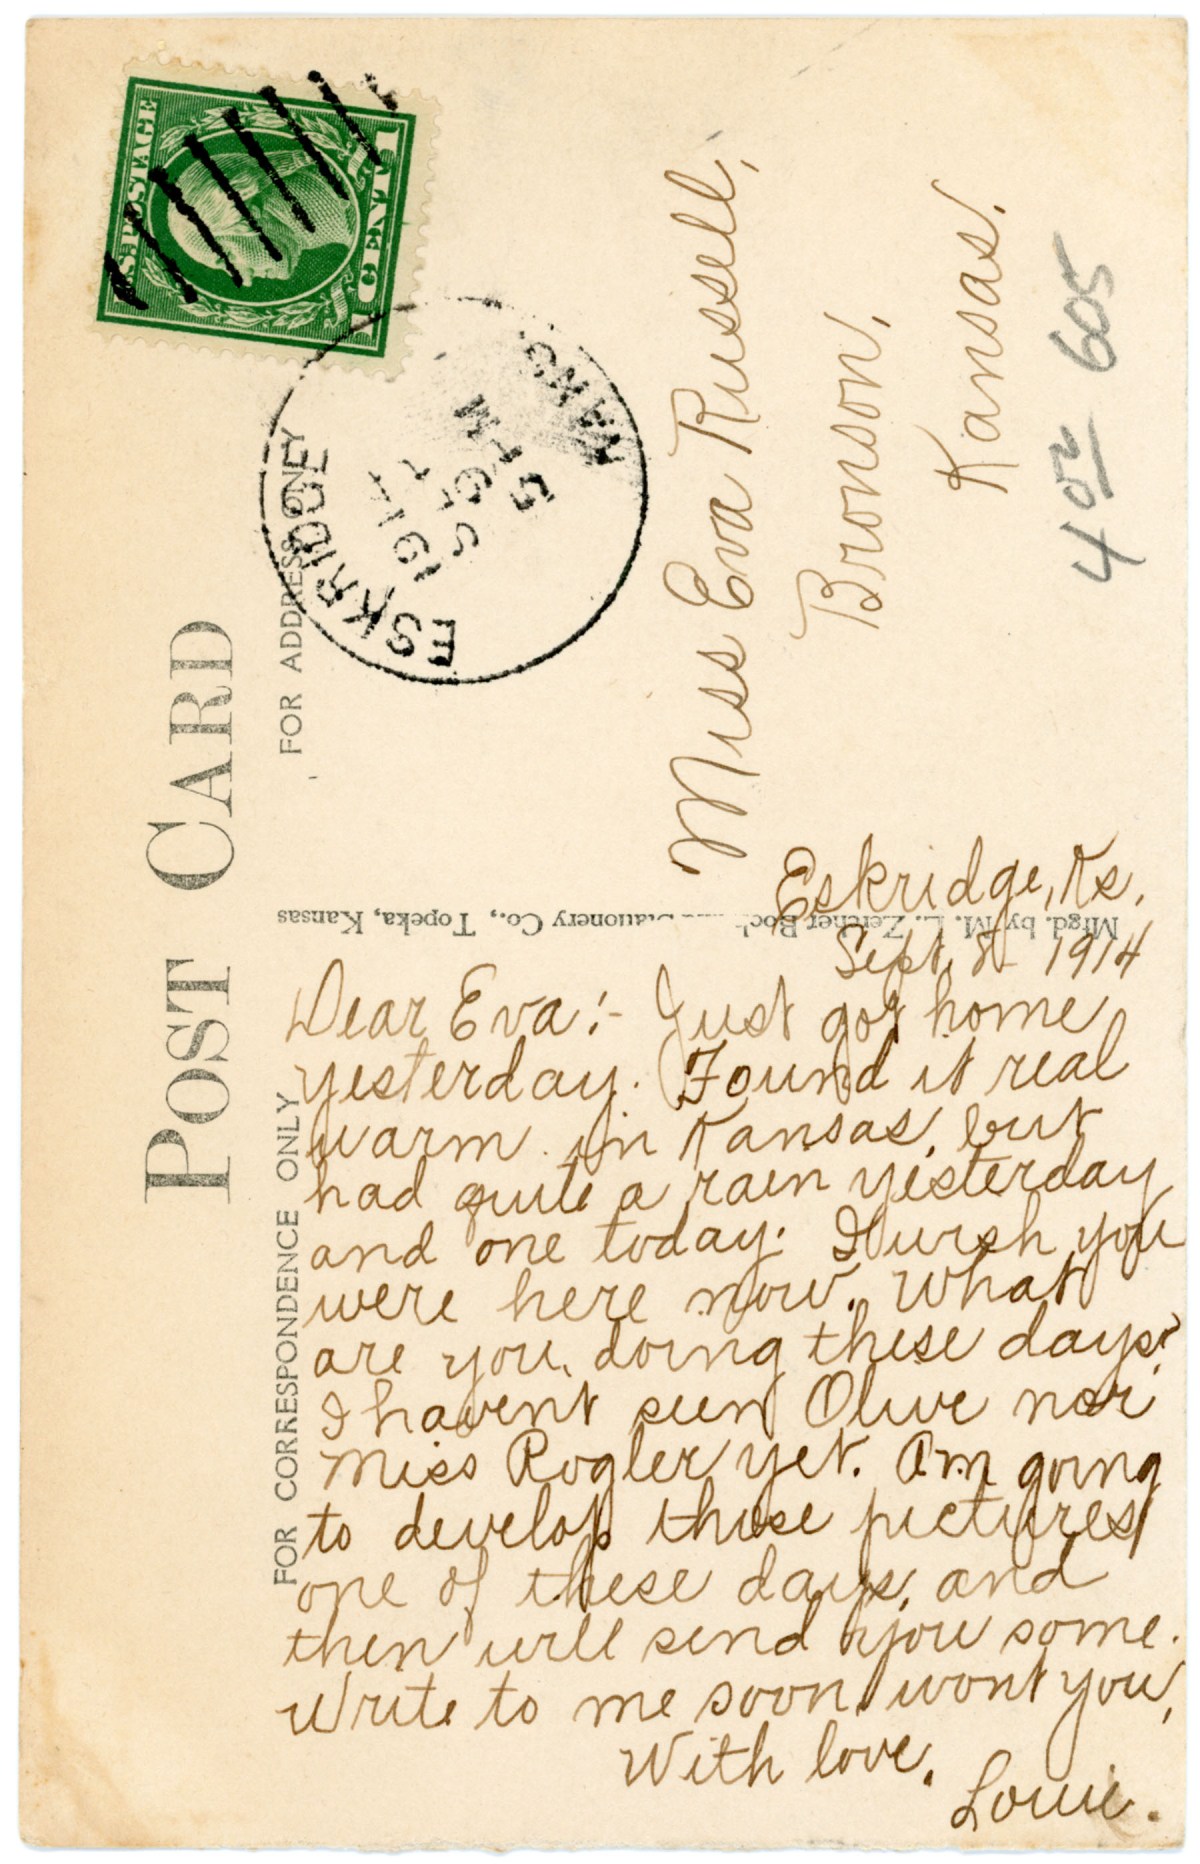 POST CARD
FOR ADDRESS ONLY
FOR CORRESPONDENCE ONLY
U.S. POSTAGE
1 CENT 1
ESKRIDGE
KANS.
5 PM
1914
Miss Eva Russell,
Bronson,
Kansas.
605
Mfgd. by M. L. Zercher Book Stationery Co., Topeka, Kansas
Eskridge, Ks.
Sept. 8 - 1914
Dear Eva:- Just got home
yesterday. Found it real
warm in Kansas, but
had quite a rain yesterday
and one today. I wish you
were here now. What
are you doing these days?
I havent seen Olive nor
Miss Rogler yet. Am going
to develop those pictures
one of these days, and
then will send you some.
Write to me soon wont you,
With love,
Louie.